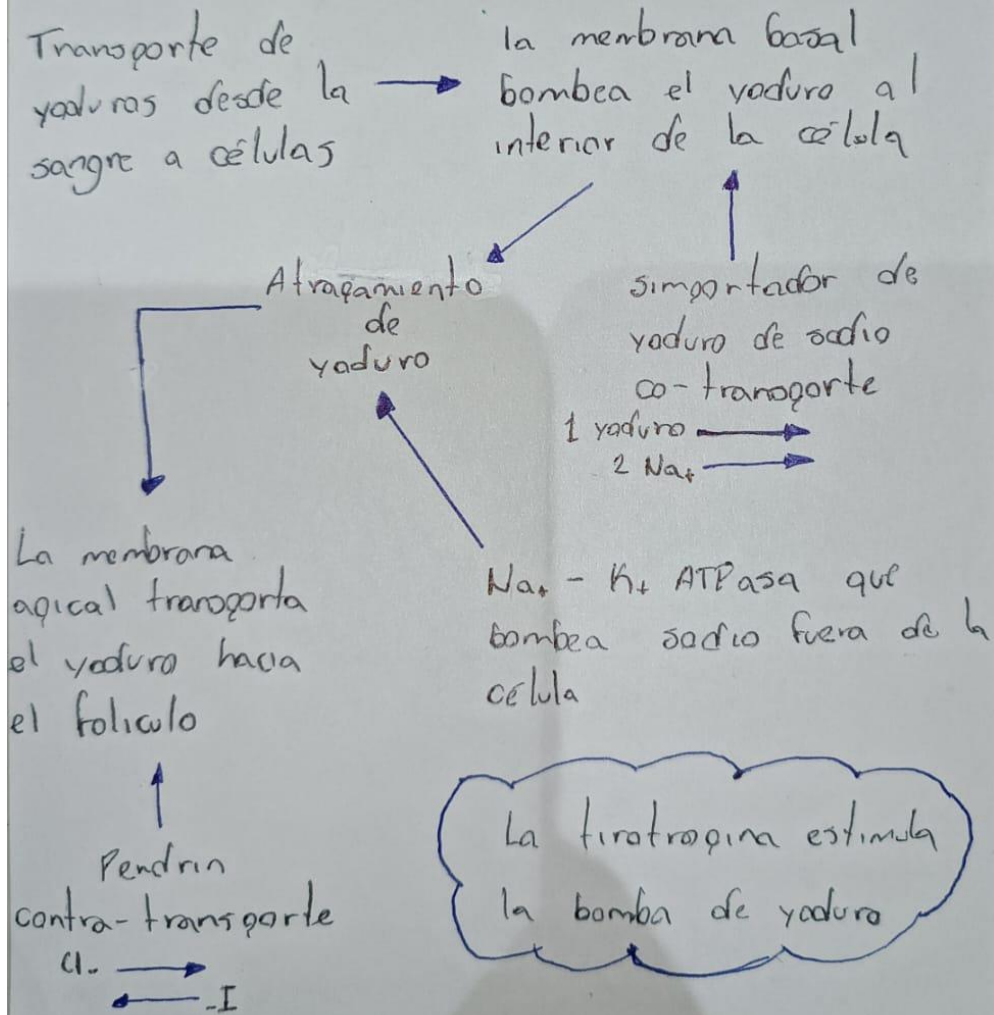 Transporte de
yoduros desde la
sangre a células
la membrana basal
bombea el yoduro al
interior de la célula
Atrapamiento
de
yoduro
simportador de
yoduro de sodio
co-transporte
1 yoduro
2 Na+
La membrana
apical transporta
el yoduro hacia
el foliculo
Na+ - K+ ATPasa que
bombea sodio fuera de la
célula
Pendrin
contra-transporte
Cl-
-I
La tirotropina estimula
la bomba de yoduro